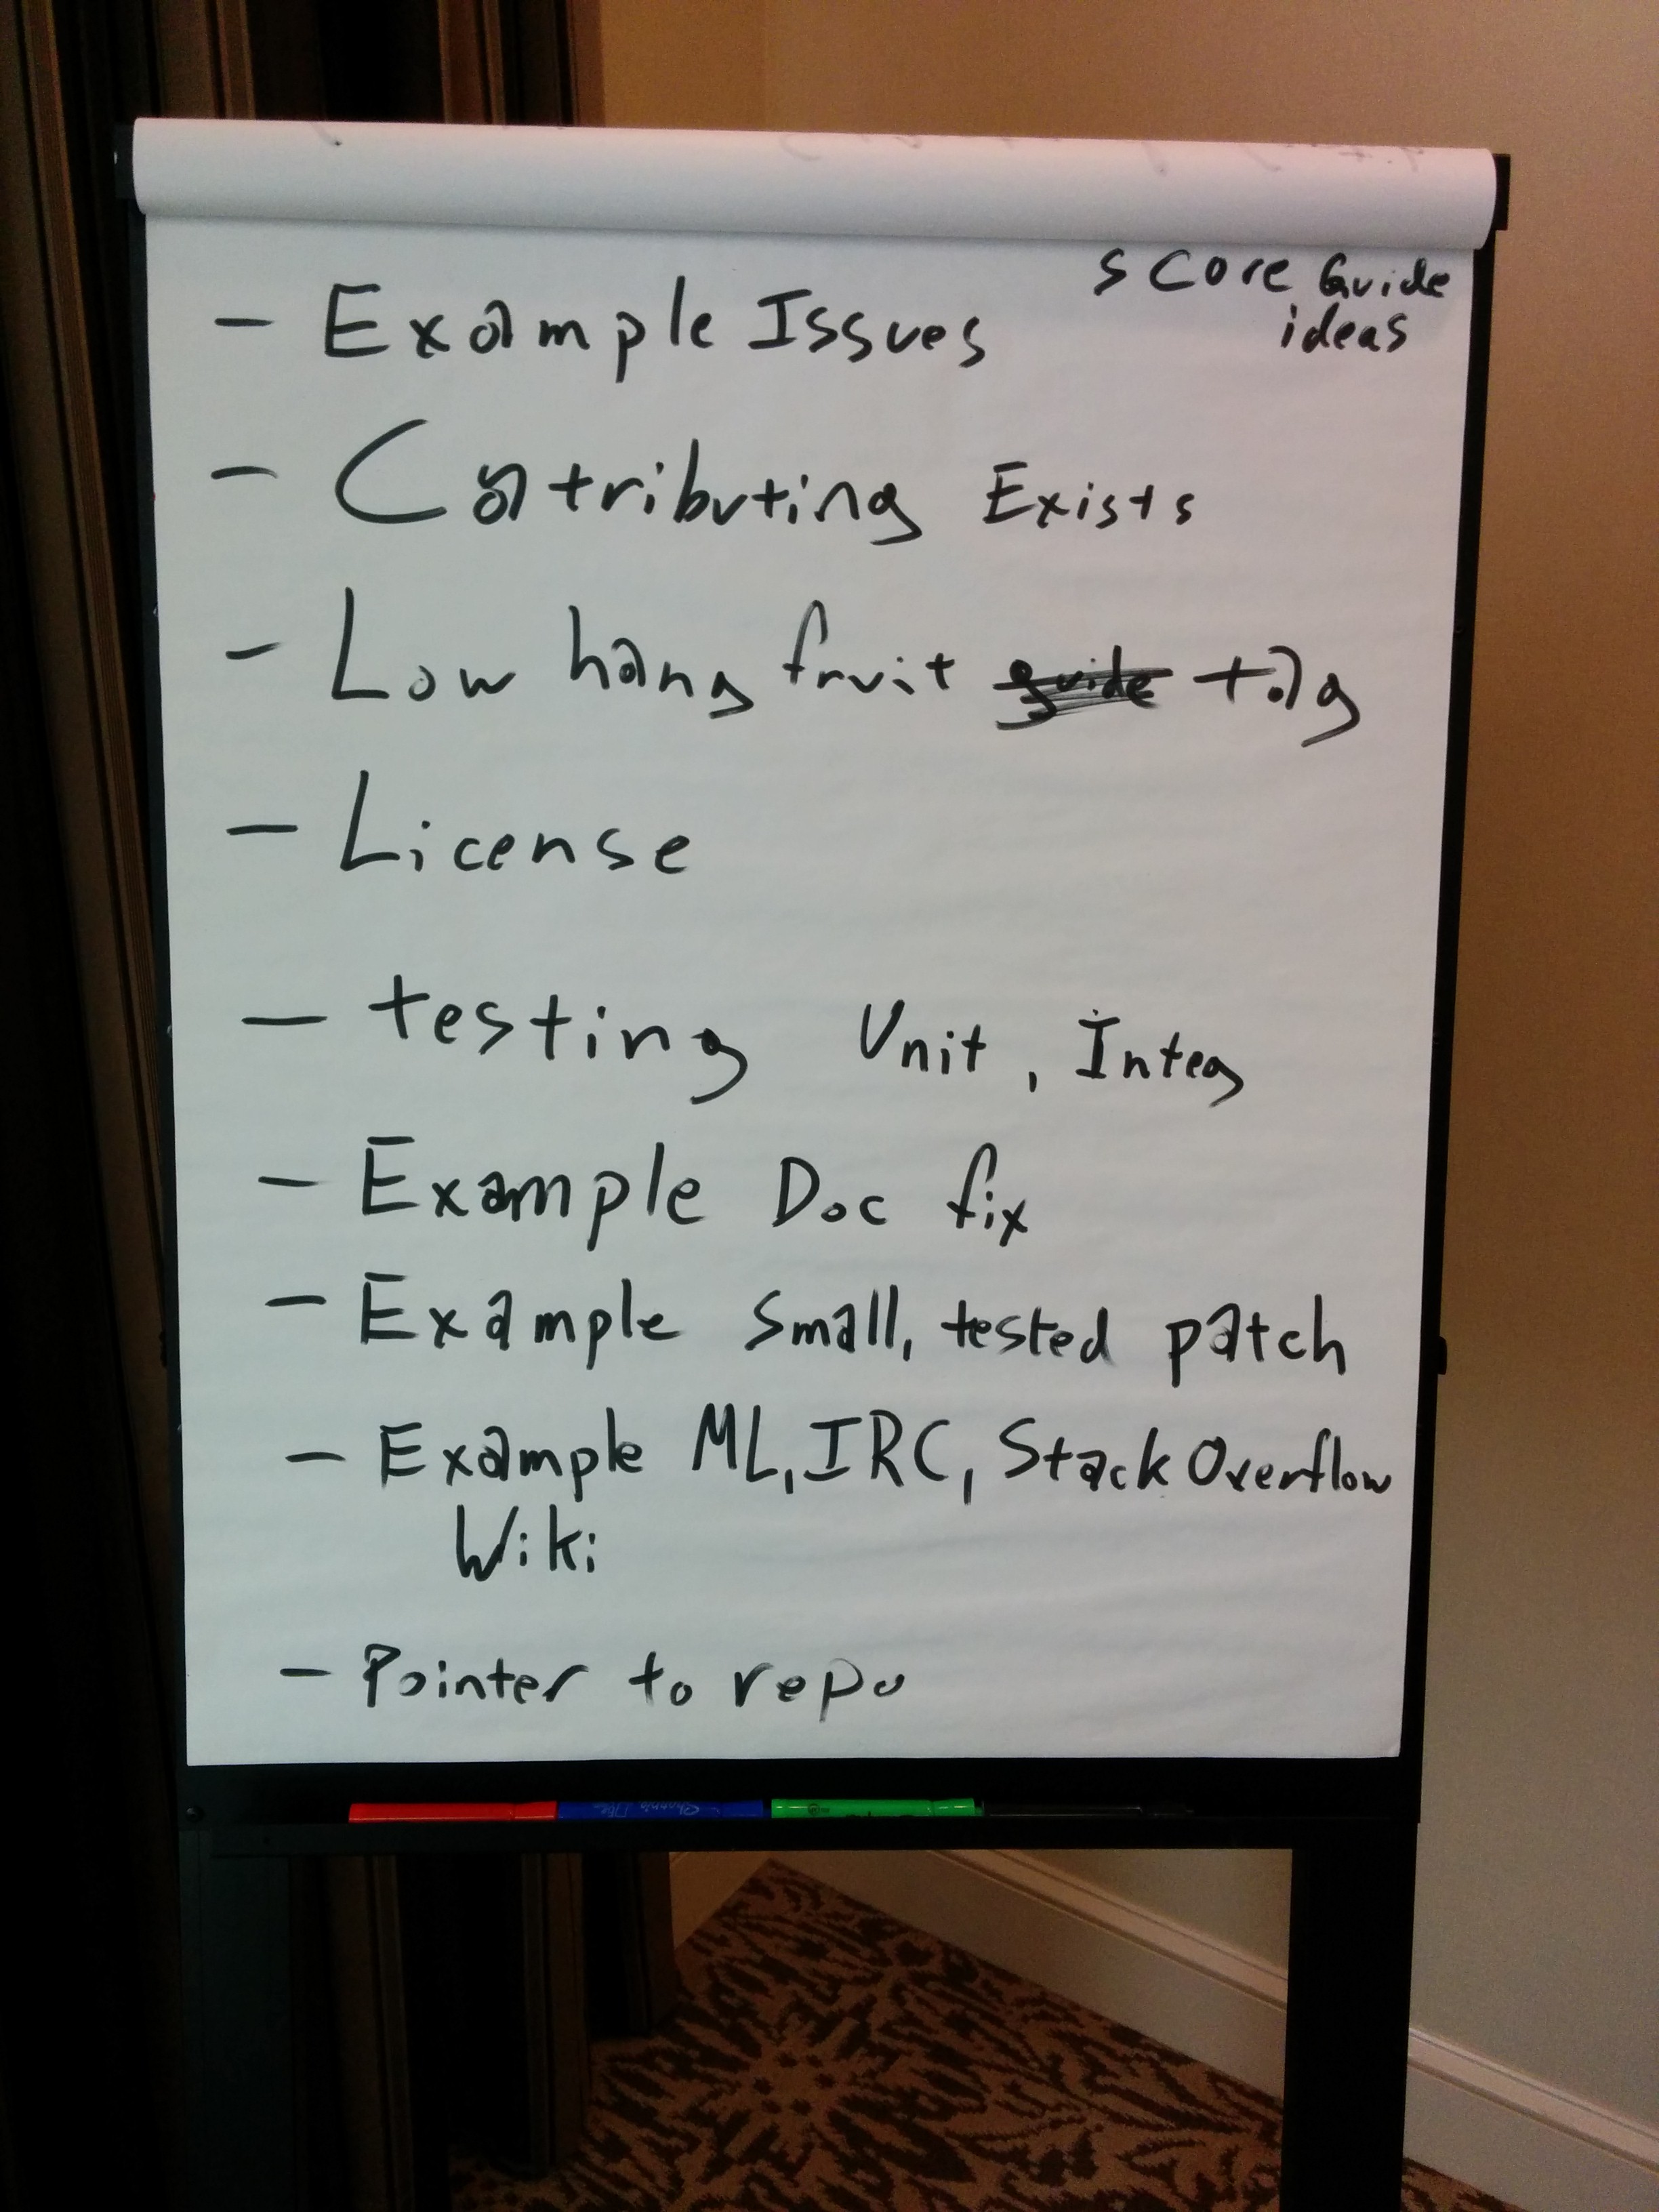 score Guide
ideas
- Example Issues
- Contributing Exists
- Low hang fruit guide tag
- License
- testing Unit, Integ
- Example Doc fix
- Example small, tested patch
- Example ML, IRC, Stack Overflow
Wiki
- Pointer to repo